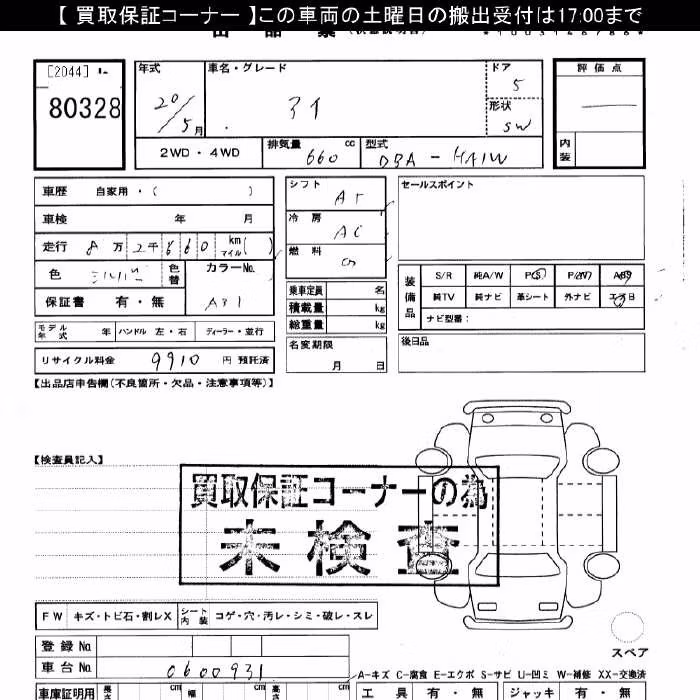 【 買取保証コーナー 】この車両の土曜日の搬出受付は17:00まで
[2044]
80328
年式
20/5月
車名・グレード
アイ
ドア
5
形状
SW
評価点
内装
2WD・4WD
排気量 660 cc
型式
DBA - HA1W
車歴 自家用・( )
車検 年 月
走行 8万2千660 km マイル( )
色 シルバー 色替
カラーNo.
A31
保証書 有・無
シフト AT
冷房 AC
燃料 G
乗車定員 名
積載量 kg
総重量 kg
セールスポイント
装備品
S/R 純A/W P(S) P(W) ABS
純TV 純ナビ 革シート 外ナビ エアB
ナビ型番:
モデル年式 年 ハンドル 左・右 ディーラー・並行
名変期限 月 日
後日品
リサイクル料金 9910 円 預託済
【出品店申告欄(不良箇所・欠品・注意事項等)】
【検査員記入】
買取保証コーナーの為
未検査
FW キズ・トビ石・割レX シート内装 コゲ・穴・汚レ・シミ・破レ・スレ
登録No.
車台No. 0600931
スペア
A-キズ C-腐食 E-エクボ S-サビ U-凹ミ W-補修 XX-交換済
車庫証明用 長さ cm 幅 cm 高さ cm
工具 有・無 ジャッキ 有・無